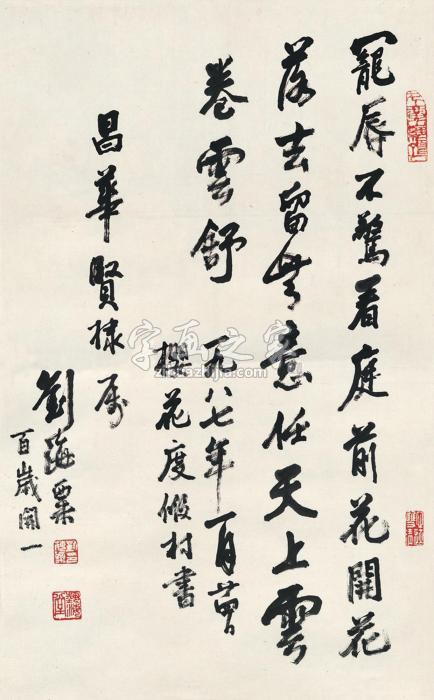 寵辱不驚看庭前花開花
落去留無意任天上雲
卷雲舒
一九八七年一月
櫻花度假村書
昌華賢棣屬
劉海粟
百歲開一
字画之家